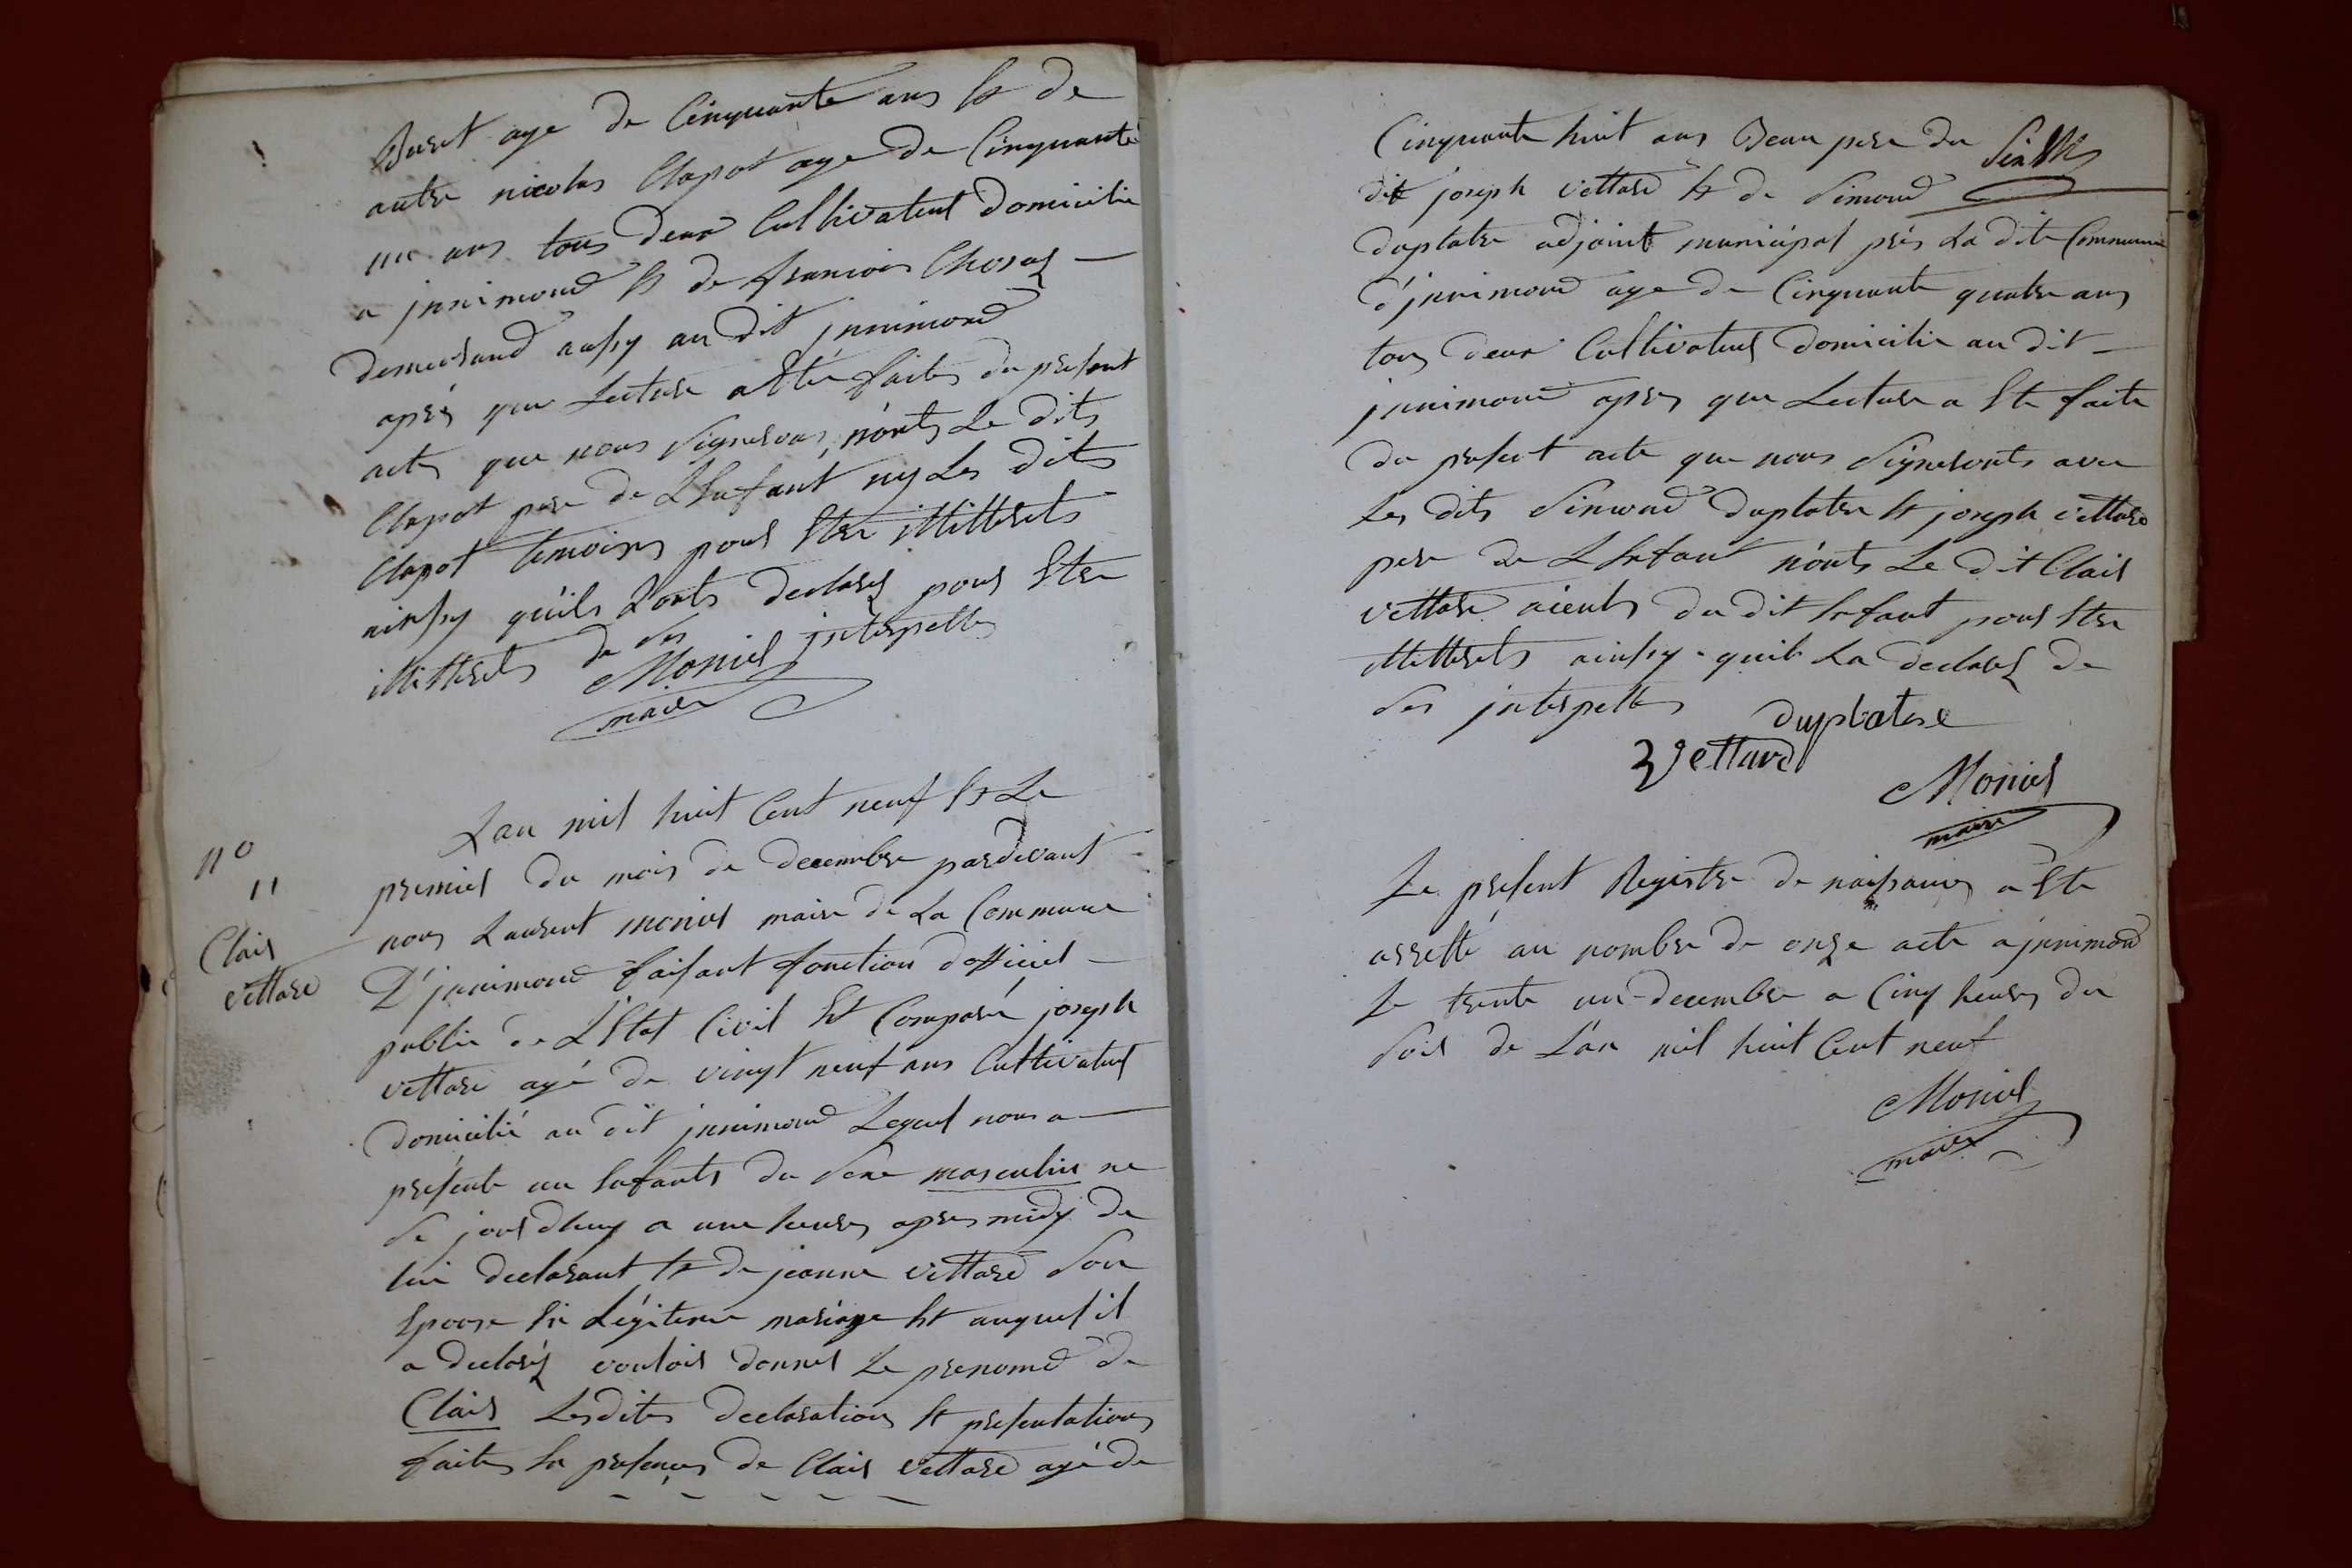 Buret age de Cinquante ans Et de
autre nicolas Clapot age de Cinquante
un ans tous deux Cultivateur domicilie
a jnnimond Et de francois
demeurand aussy au dit jnnimond
après que Lecture a Eté faites du present
actes que nous signerons, n'onts Le dits
Clapot pere de LEnfant ny Les dits
Clapot temoins pour Etre illitterets
ainssy qu'ils L'onts declarez pour Etre
illitterets de des jnterpelles
Moniel
maire
Lan mil huit Cent neuf Et Le
premier du mois de decembre pardevant
nous Laurent moniel maire de La Commune
D'jnnimond faisant fonction dofficier
public de L'Etat Civil Est Comparu joseph
vettard agé de vingt neuf ans Cultivateur
domicilié au dit jnnimond Lequel nous a
présente un Enfants du sexe masculin ne
se jourdhuy a une heures apres midy de
lui declarant Et de jeanne vettard son
Epouse En Légiteme mariage Et auquel il
a declaréz vouloir donner Le prenomd de
Clair Lesdites declarations Et presentations
faites En presences de Clair Vettard agé de
n°
11
Clair
vettard
Cinquante huit ans Beau pere du
dit joseph vettard Et de Simond
duplatre adjoint municipal prés La dite Commune
d'jnnimond age de Cinquante quatre ans
tous deux Cultivateur domicilie au dit
jnnimond apres que Lecture a Ete faite
du present acte que nous signeronts avec
Les dits Simond duplatre Et joseph vettard
pere de LEnfant n'onts Le dit Clair
vettard aieuls du dit Enfant pour Etre
illitterets ainssy quil La declarez de
des jnterpelles
duplatre
Vettard
Moniel
maire
Le present Registre de naissances a Ete
arretté au nombre de onze acte a jnnimond
Le trente un decembre a Cinq heures du
soir de L'an mil huit Cent neuf
Moniel
maire